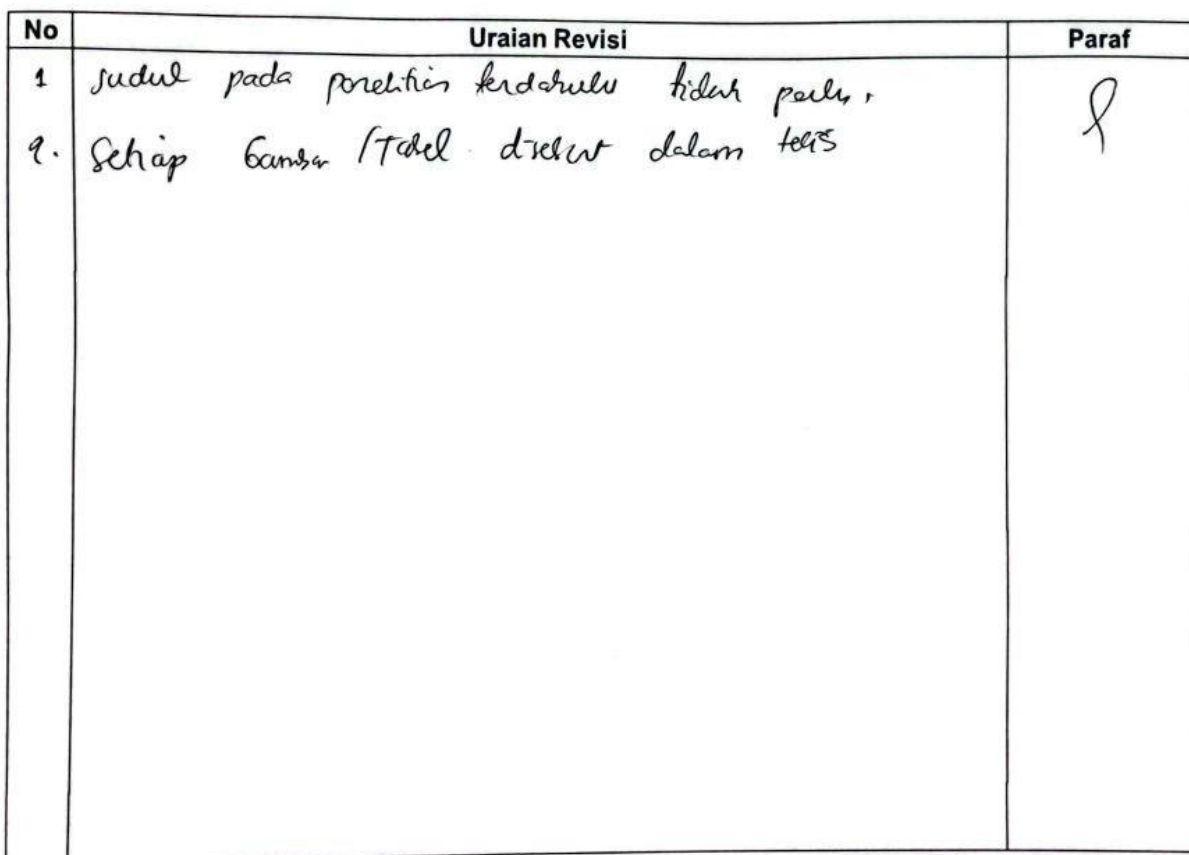 No Uraian Revisi Paraf
1 Judul pada penelitian terdahulu tidak perlu.
2. Setiap Gambar / Tabel disebut dalam teks